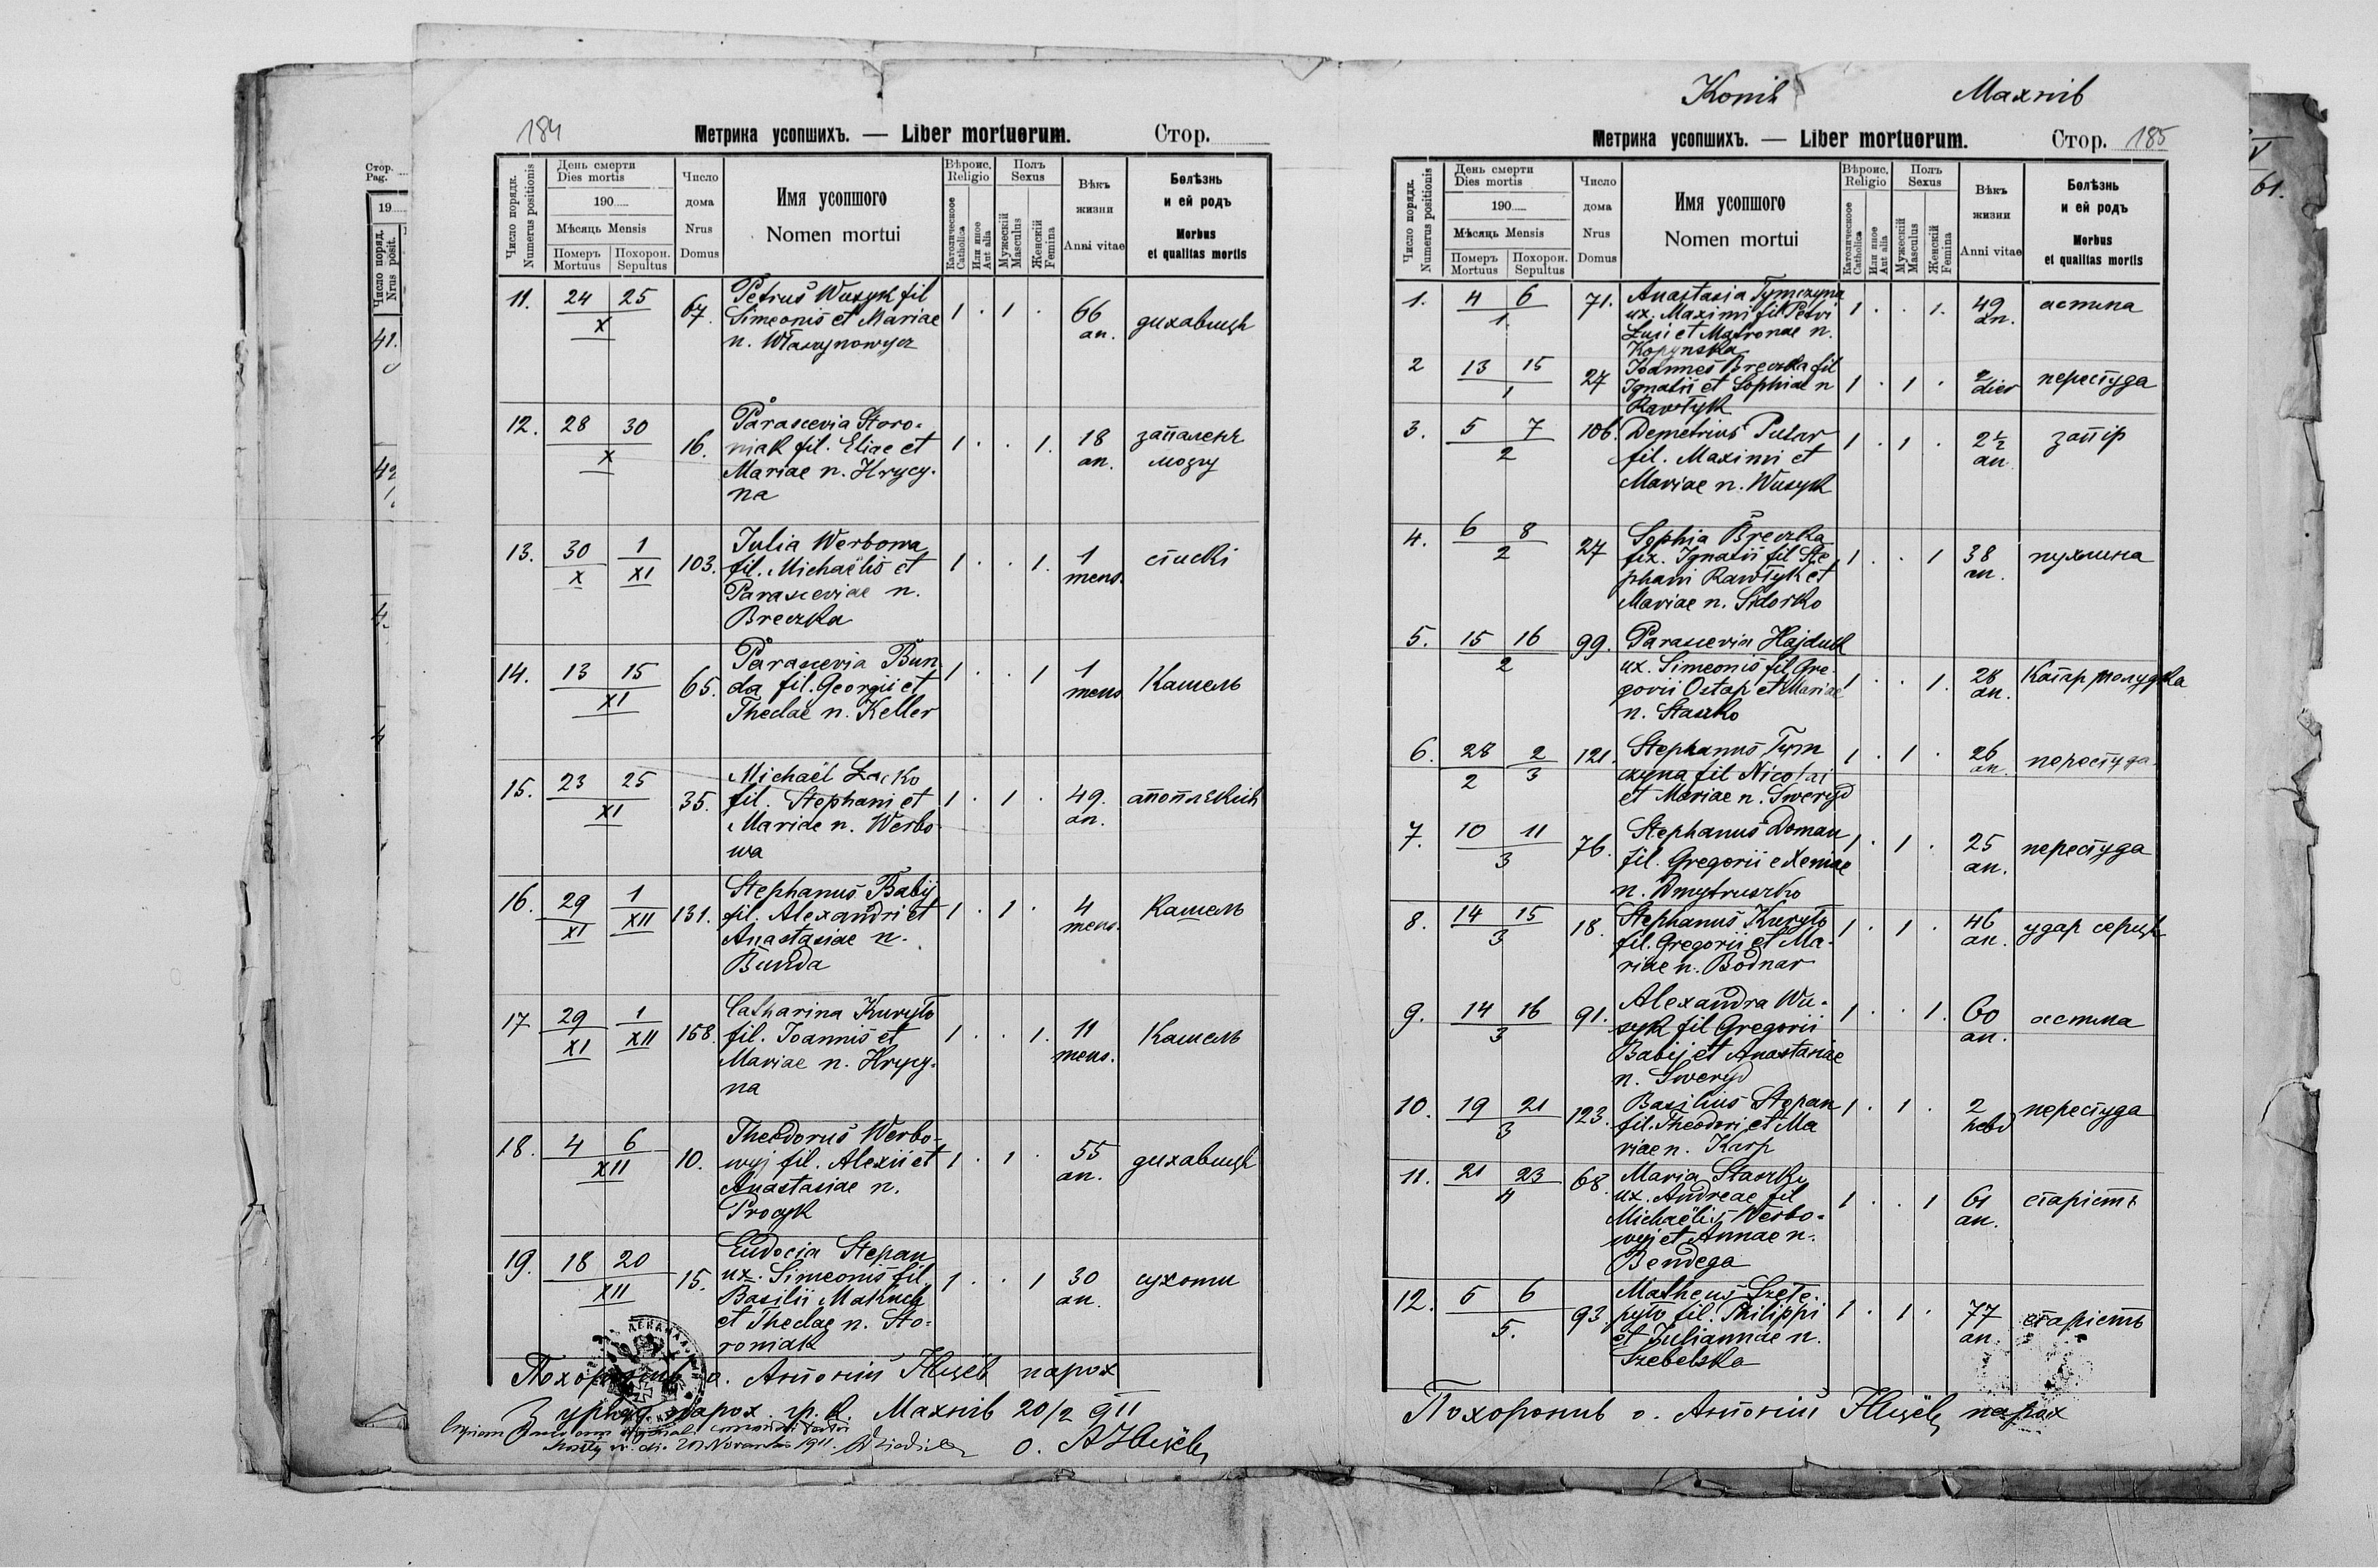 184
Метрика усопшихъ. — Liber mortuorum. Стор.
Число порядк. Numerus positionis
День смерти Dies mortis
190
Мѣсяць Mensis
Померъ Mortuus
Похорон. Sepultus
Число дома Nrus Domus
Имя усопшого Nomen mortui
Вѣроис. Religio
Католическое Catholica
Или иное Aut alia
Полъ Sexus
Мужескій Masculus
Женскій Femina
Вѣкъ жизни Anni vitae
Болѣзнь и ей родъ Morbus et qualitas mortis
11. 24 25 X 67. Petrus Wusyk fil 1 . 1 . 66 an. дихавиця
Simeonis et Mariae
n. Własynowycz
12. 28 30 X 16. Parascevia Storo- 1 . . 1. 18 an. запаленє мозгу
niak fil. Eliae et
Mariae n. Hrycy-
na
13. 30 X 1 XI 103. Julia Werbowa 1 . . 1. 1 mens. стиски
fil. Michaëlis et
Parasceviae n.
Breczka
14. 13 15 XI 65. Parascevia Bun- 1 . . 1 1 mens Кашель
da fil. Georgii et
Theclae n. Keller
15. 23 25 XI 35. Michaël Lacko 1 . 1 . 49. an. апоплєксія
fil. Stephani et
Mariae n. Werbo-
wa
16. 29 XI 1 XII 131. Stephanus Babij 1 . 1 . 4 mens. Кашель
fil. Alexandri et
Anastasiae n.
Bunda
17 29 XI 1 XII 158. Catharina Kuryło 1 . . 1. 11 mens. Кашель
fil. Joannis et
Mariae n. Hrycy-
na
18. 4 6 XII 10. Theodorus Werbo- 1 . 1 . 55 an. дихавиця
wyj fil. Alexii et
Anastasiae n.
Procyk
19. 18 20 XII 15. Eudocia Stepan 1 . . 1 30 an. сухоти
ux. Simeonis fil
Basilii Makuch
et Theclae n. Sto-
roniak
Похоронив о. Антоній парох
З уряду парох. гр. к. Махнів 20/2 911
Novembris 1911.
о. А
Махнів
Метрика усопшихъ. — Liber mortuorum. Стор. 185
Число порядк. Numerus positionis
День смерти Dies mortis
190
Мѣсяць Mensis
Померъ Mortuus
Похорон. Sepultus
Число дома Nrus Domus
Имя усопшого Nomen mortui
Вѣроис. Religio
Католическое Catholica
Или иное Aut alia
Полъ Sexus
Мужескій Masculus
Женскій Femina
Вѣкъ жизни Anni vitae
Болѣзнь и ей родъ Morbus et qualitas mortis
1. 4 6 1. 71. Anastasia Tymczyna 1 . . 1. 49 an. астма
ux. Maximi fil Petri
et Matronae n.
Kopynska
2 13 15 1 27 Joannes Breczka fil 1 . 1 . 2 dier перестуда
Ignatii et Sophiae n
Rawłyk
3. 5 7 2 106. Demetrius Putar 1 . 1 . 2 1/2 an запір
fil. Maximi et
Mariae n. Wusyk
4. 6 8 2 27 Sophia Breczka 1 . . 1 38 an. пухлина
ux. Ignatii fil Ste-
phani Rawłyk et
Mariae n. Sidorko
5. 15 16 2 99. Parascevia Hajduk 1 . . 1. 28 an. Катар жолудка
ux. Simeonis fil Gre-
gorii Ostap et Mariae
n. Staszko
6. 28 2 2 3 121. Stephanus Tym 1 . 1 . 26 an. перестуда
czyna fil Nicolai
et Mariae n. Sweryd
7. 10 11 3 76. Stephanus Doman 1 . 1 . 25 an. перестуда
fil. Gregorii e Xeniae
n. Dmytruszko
8. 14 15 3 18. Stephanus Kuryło 1 . 1 . 46 an. удар серця
fil. Gregorii et Ma-
riae n. Bodnar
9. 14 16 3 91. Alexandra Wu- 1 . . 1. 60 an. астма
syk fil Gregorii
Babij et Anastasiae
n. Sweryd
10. 19 21 3 123. Basilius Stepan 1 . 1 . 2 hebd перестуда
fil. Theodori et Ma
riae n. Karp
11. 21 23 4 68. Maria Staszko 1 . . 1 61 an. старість
ux. Andreae fil
Michaëlis Werbo-
wyj et Annae n.
Bendega
12. 5 6 5. 93. Matheus Szele- 1 . 1 . 77 an. старість
pyło fil. Philippi
et Juliannae n.
Szebelska
Похоронив о. Антоній парох